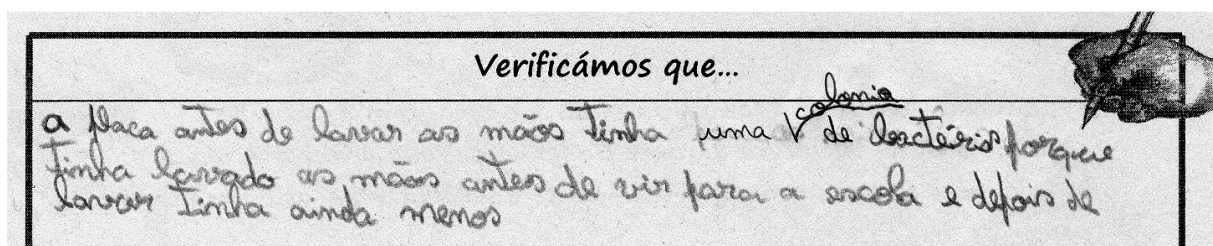 Verificámos que...
colonia
a placa antes de lavar as mãos tinha uma V de bactérias porque
tinha lavado as mãos antes de vir para a escola e depois de
lavar tinha ainda menos